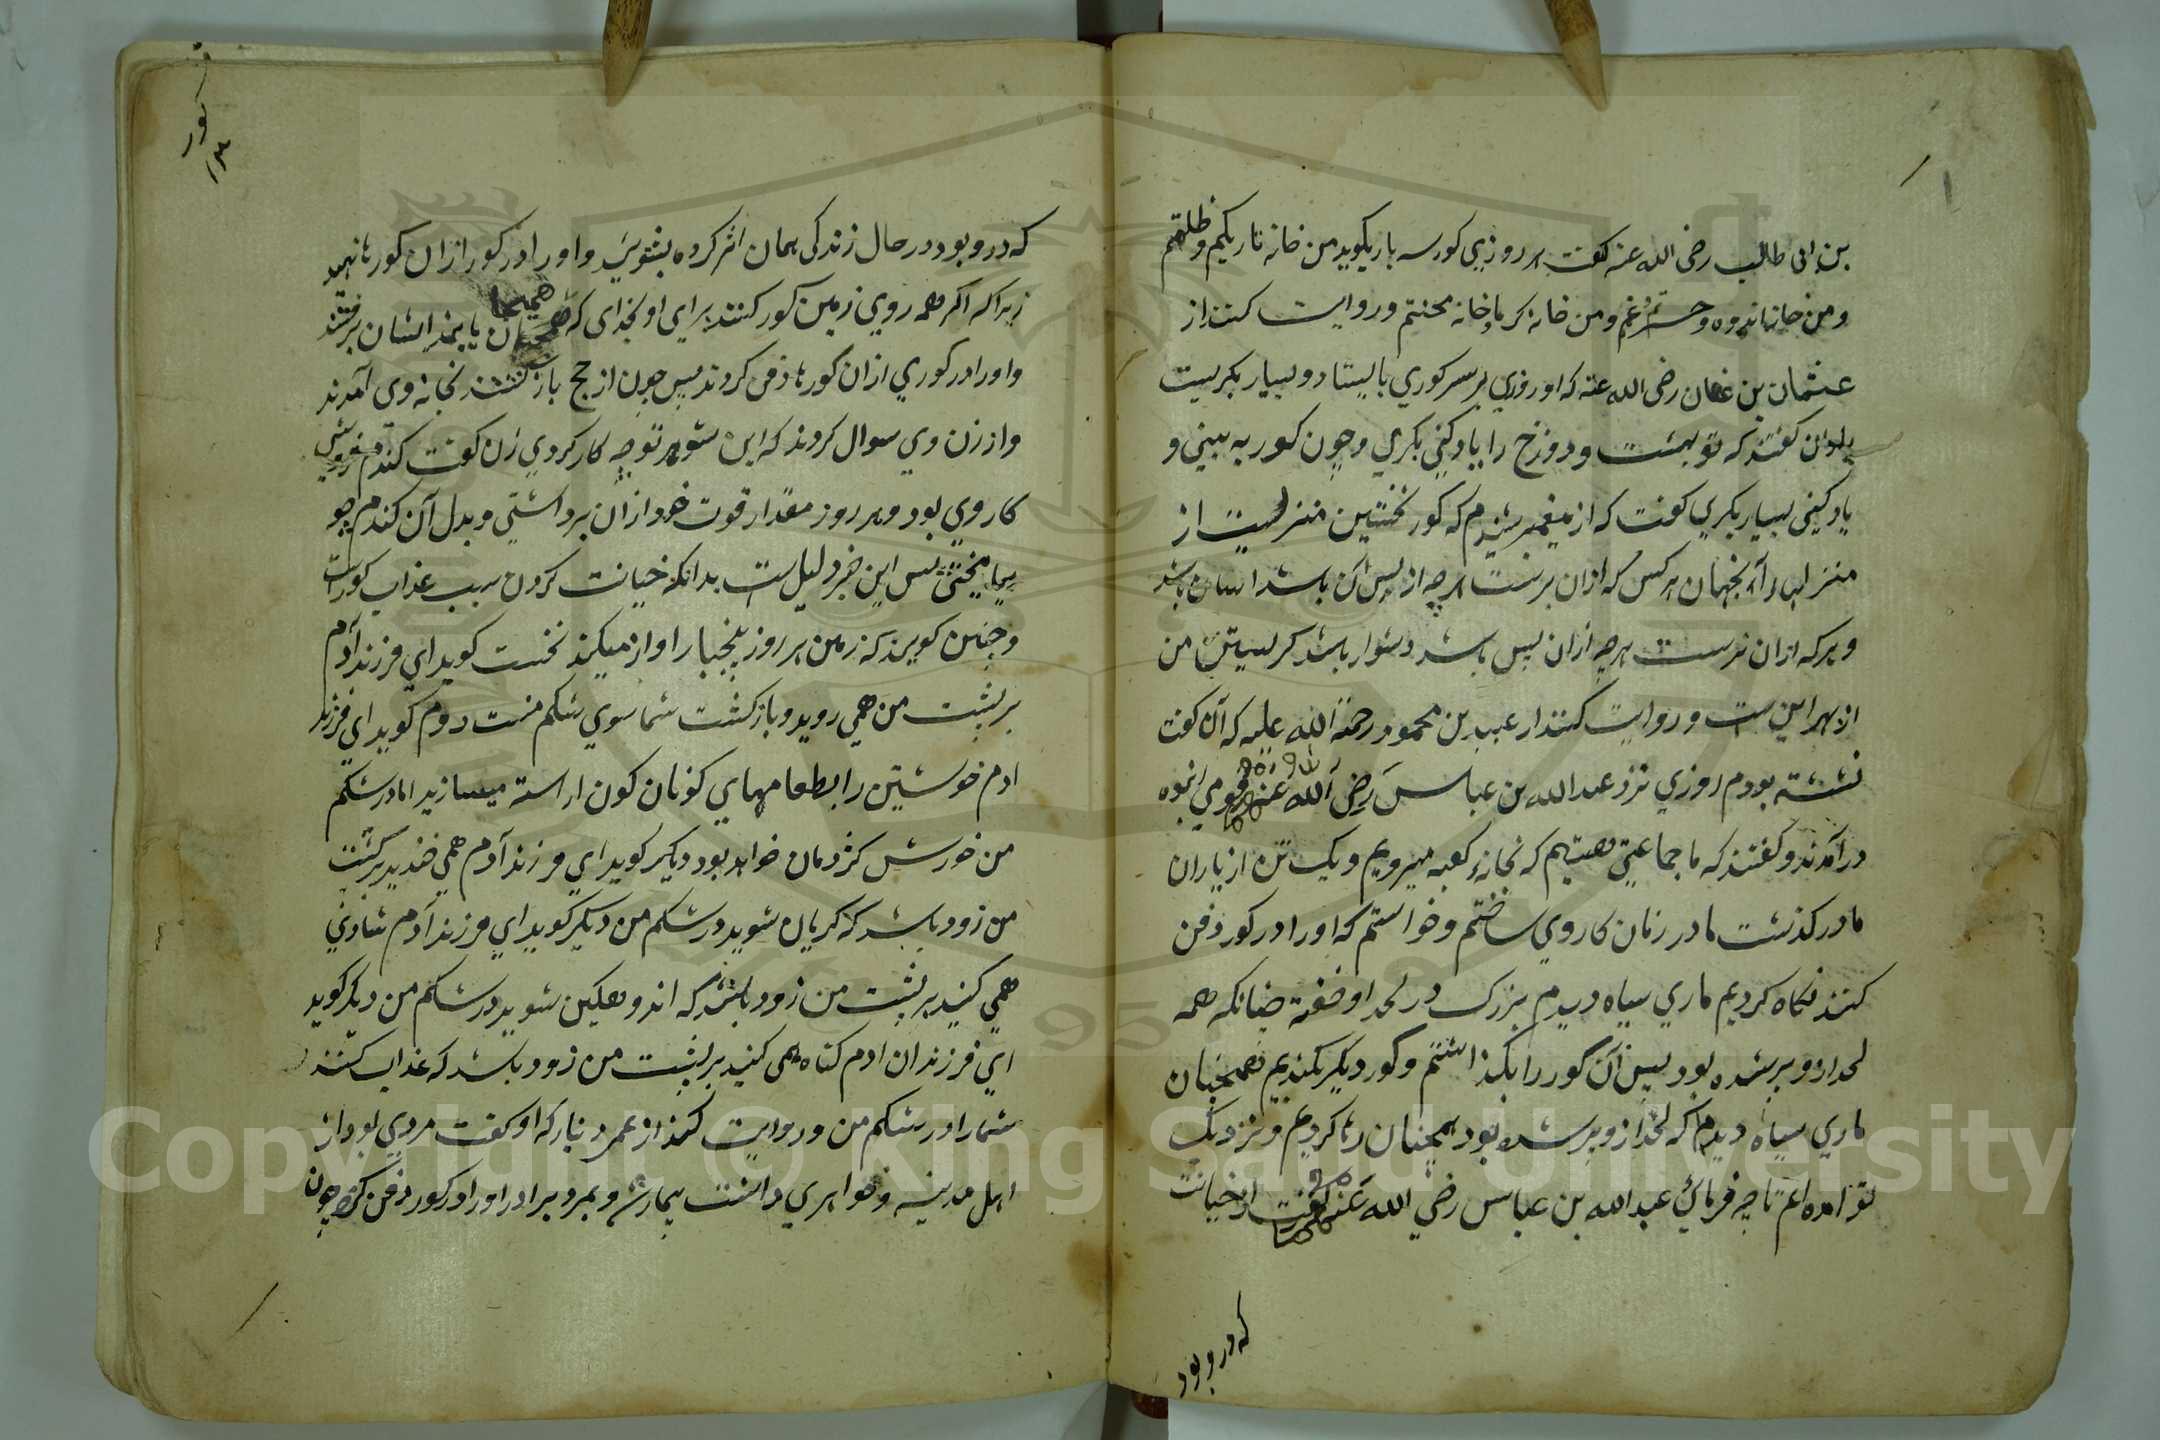 بن ابی طالب رضی الله عنه گفت هر روزی گور سه بار بگوید من خانه تاریکیم و ظلمتم
و من خانه اندوه و غمم و من خانه کرم و خانه محنتم و روایت کنند از
عثمان بن عفان رضی الله عنه که او روزی بر سر کوری بایستاد و بسیار بکریست
یاران گفتند که تو بهشت و دوزخ را یاد کنی نکری و چون کور به بینی و
یاد کنی بسیار بکری گفت که از پیغمبر شنیدم که کور نخستین منزلیست از
منزلهاء آنجهان هر کس که ازان برست هرچه از پس آن باشد اسان باشد
و هرکه ازان نرست هرچه ازان پس باشد دشوار باشد کریستن من
از بهر این ست و روایت کنند از عبد بن محمود رحمة الله علیه که آن گفت
نشسته بودم روزی نزد عبدالله بن عباس رضی الله عنه قومی انبوه
درآمدند و گفتند که ما جماعتی هستیم که بخانهٔ کعبه میرویم و یک تن از یاران
مادر گذشت ما در زمان کار وی ساختیم و خواستم که اورا در کور دفن
کنند نگاه کردیم ماری سیاه دیدم بزرک در لحد او خفته چنانکه همه
لحد ازو پر شده بود پس آن گور را بگذاشتم و کور دیگر بکندیم همچنان
ماری سیاه دیدم که لحد ازو پر شده بود همچنان رها کردیم و نزدیک
تو امده ایم تا چه فرمائی عبدالله بن عباس رضی الله عنه گفت او خیانت
که درو بود
کور
۱۳
که درو بود در حال زندگی همان اثر کرده بشویید و اورا در کور ازان کورها نهید
زیرا که اکر همه روی زمین کور کنند برای او بخدای که همچنان یابند ایشان برفتند
همچنان
واورا در کوری ازان کورها دفن کردند پس چون از حج باز گشتند بخانه وی آمدند
و از زن وی سوال کردند که این شوهر تو چه کار کردی زن گفت کندم فروشی
کار وی بود و هر روز مقدار قوت خود ازان برداشتی و بدل آن کندم جو
بیامیختی پس این خبر دلیل ست بدانکه خیانت کردن سبب عذاب کور است
و چنین کویند که زمین هر روز پنجبار اواز میکند نخست کوید ای فرزند آدم
بر پشت من همی روید و باز گشت شما سوی شکم منست دوم کوید ای فرزند
ادم خویشتن را بطعامهای کونان کون اراسته میسازید اما در شکم
من خورش کزدمان خواهد بود دیکر کوید ای فرزند آدم همی خندید بر پشت
من زود باشد که کریان شوید در شکم من دیکر کوید ای فرزند آدم شادی
همی کنید بر پشت من زود باشد که اندوهکین شوید در شکم من دیکر کوید
ای فرزندان ادم کناه همی کنید بر پشت من زود باشد که عذاب کنند
شما را در شکم من و روایت کنند از عمر دینار که او گفت مردی بود از
اهل مدینه و خواهری داشت بیمار شد و بمرد برادر اورا در کور دفن کرد چون